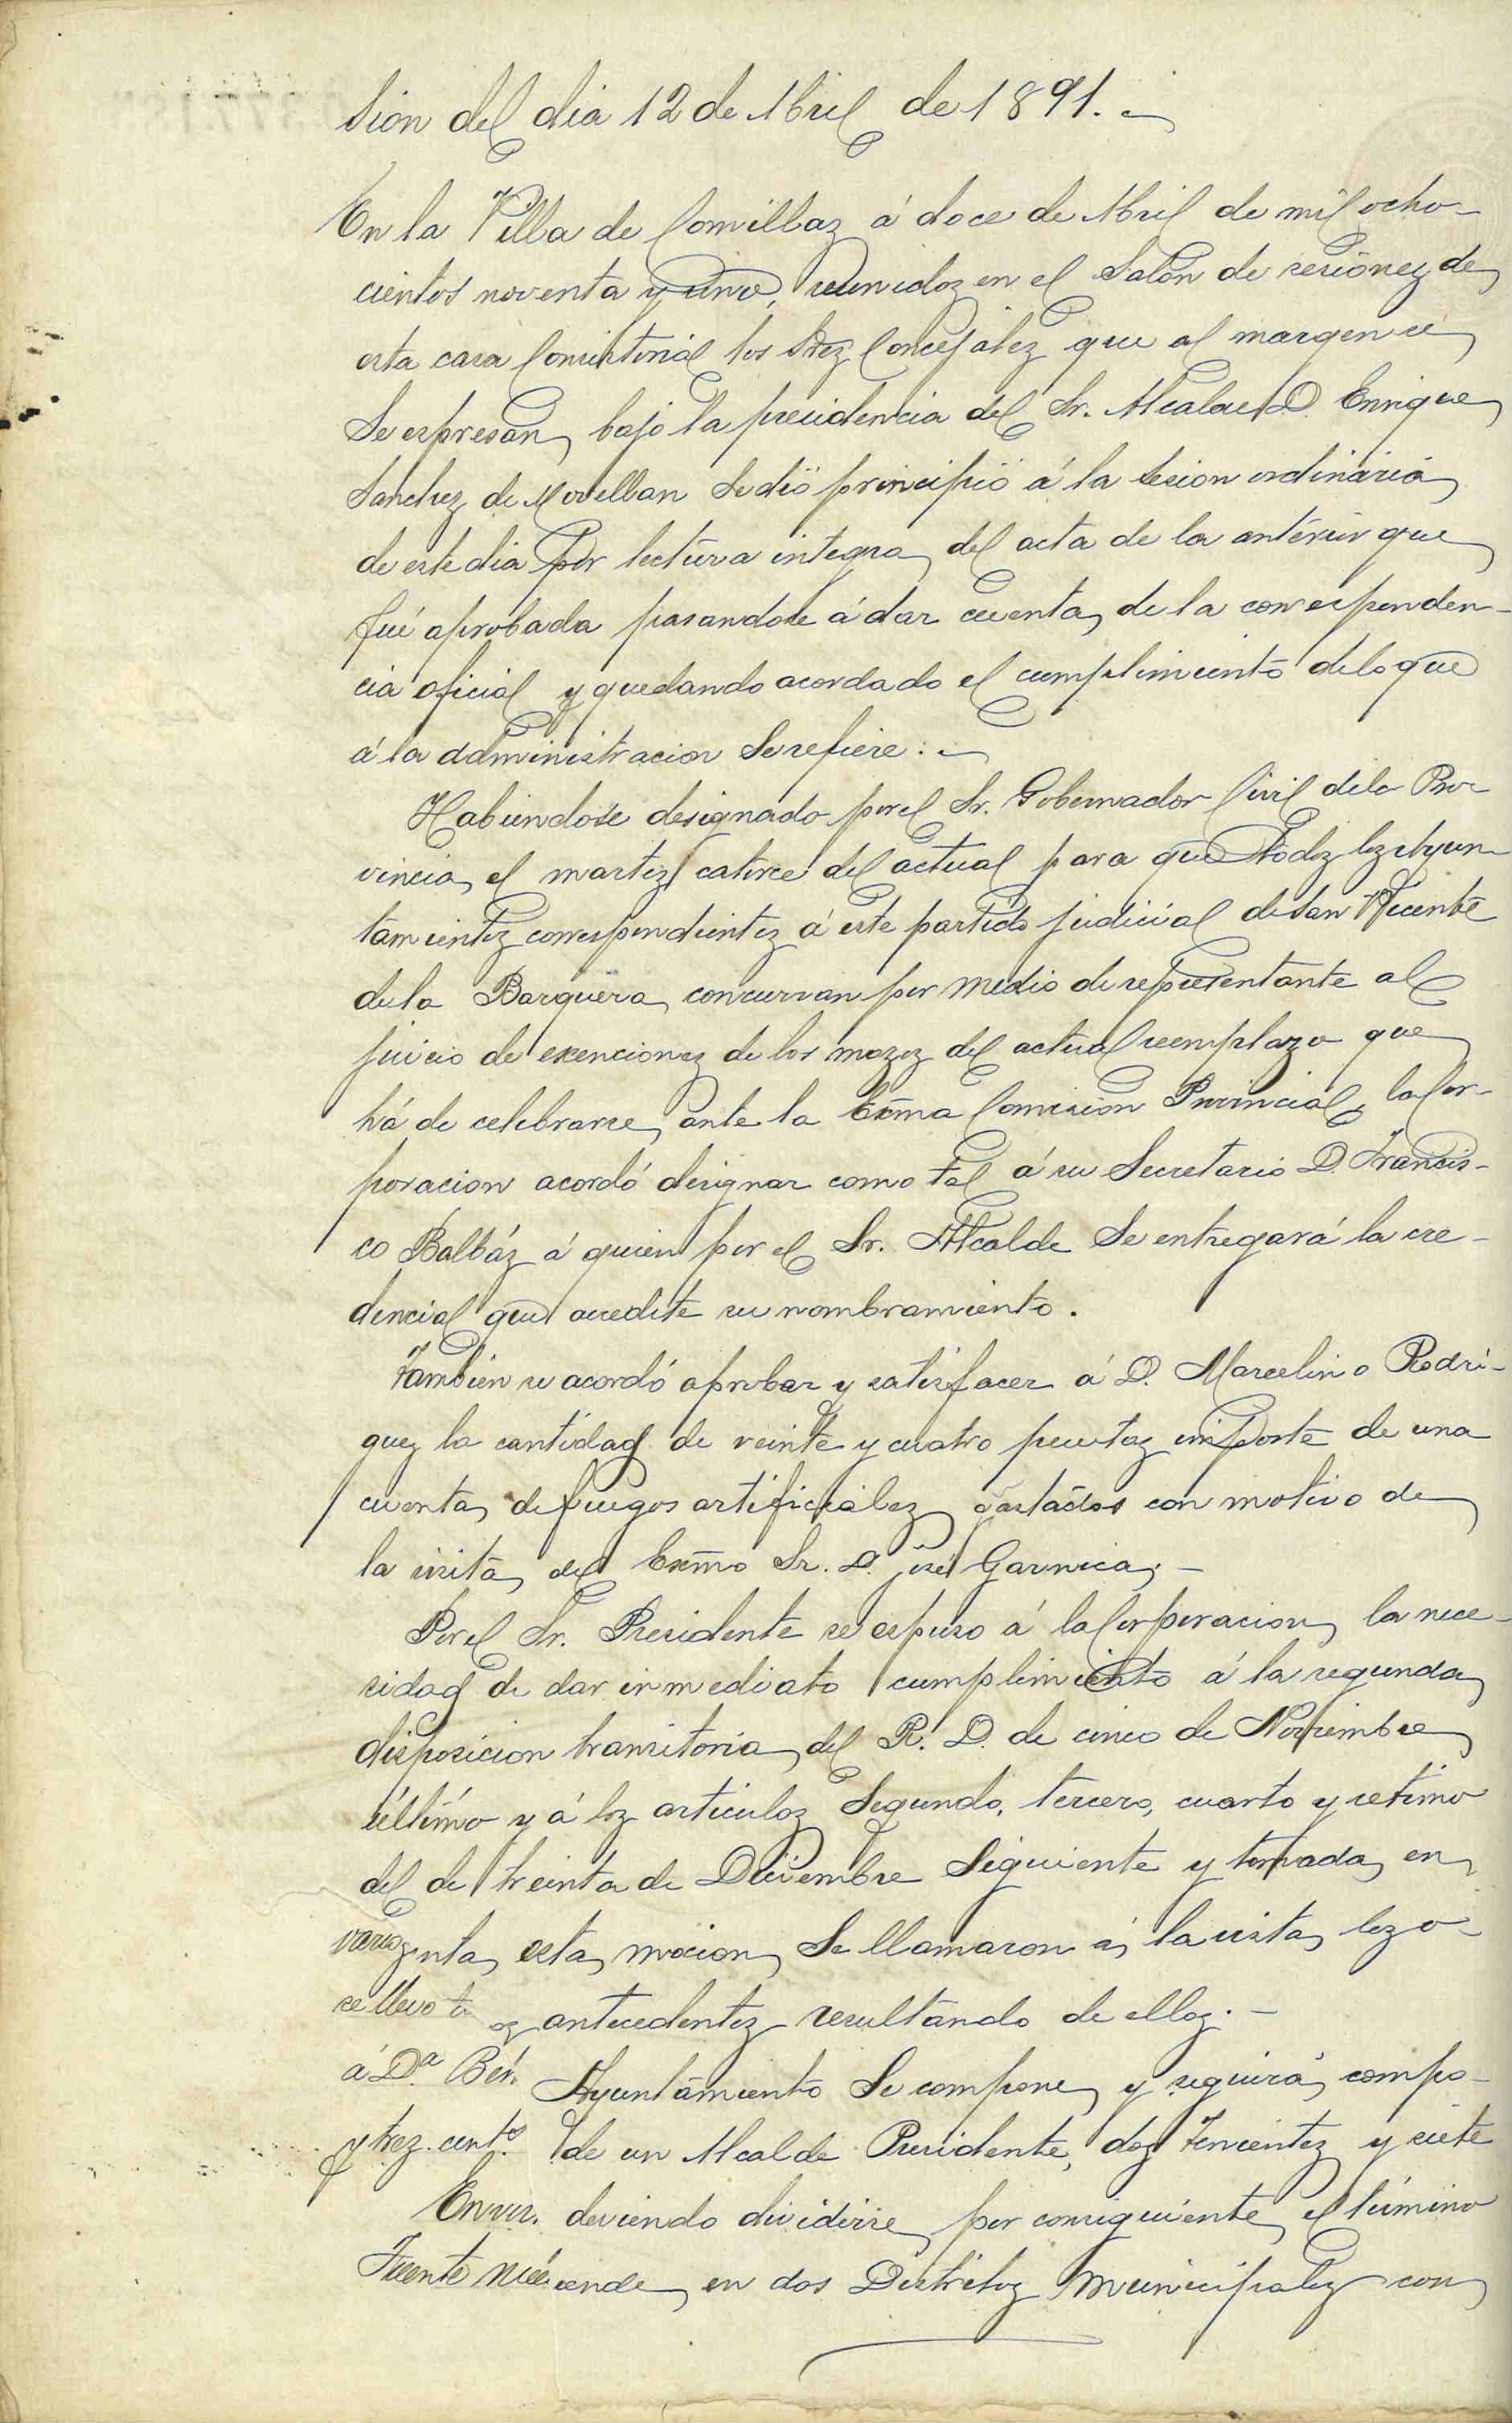 sion del dia 12 de Abril de 1891.
En la Villa de Comillas á doce de Abril de mil ocho-
cientos noventa y uno, reunidos en el Salon de sesiones de
esta casa Consistorial los Sres Concejales que al margen
se espresan bajo la presidencia del Sr. Alcalde D. Enrique
Sanchez de Movellan se dió principió á la sesion ordinaria
de este dia por lectura integra del acta de la anterior que
fué aprobada pasandose á dar cuenta de la corresponden-
cia oficial y quedando acordado el cumplimiento de lo que
á la administracion se refiere.
Habiendose designado por el Sr. Gobernador Civil de la Pro-
vincia el martes catorce del actual para que todos los Ayun-
tamientos correspondientes á este partido judicial de San Vicente
de la Barquera concurran por medio de representante al
juicio de exenciones de los mozos del actual reemplazo que
há de celebrarse ante la Exma Comision Provincial, la Cor-
poracion acordó designar como tal á su Secretario D. Francis-
co Balbáz á quien por el Sr. Alcalde se entregará la cre-
dencial que acredite su nombramiento.
Tambien se acordó aprobar y satisfacer á D. Marcelino Rodri-
guez la cantidad de veinte y cuatro pesetas importe de una
cuenta de fuegos artificiales gastados con motivo de
la visita del Exmo Sr. D. José Garnica.
Por el Sr. Presidente se espuso á la Corporacion la nece-
sidad de dar inmediato cumplimiento á la segunda
disposicion transitoria del R. D. de cinco de Noviembre
último y á los articulos segundo, tercero, cuarto y setimo
del de treinta de Diciembre siguiente y tomada en
varios nta esta mocion se llamaron á la vista los o-
se llevo antecedentes resultando de ellos.
á Da. Ben Ayuntamiento se compone y seguirá compo-
y trez. cents. de un Alcalde Presidente, dos Tenientes y siete
deviendo dividirse por consiguiente el término
Fuente en dos Distritos municipales con